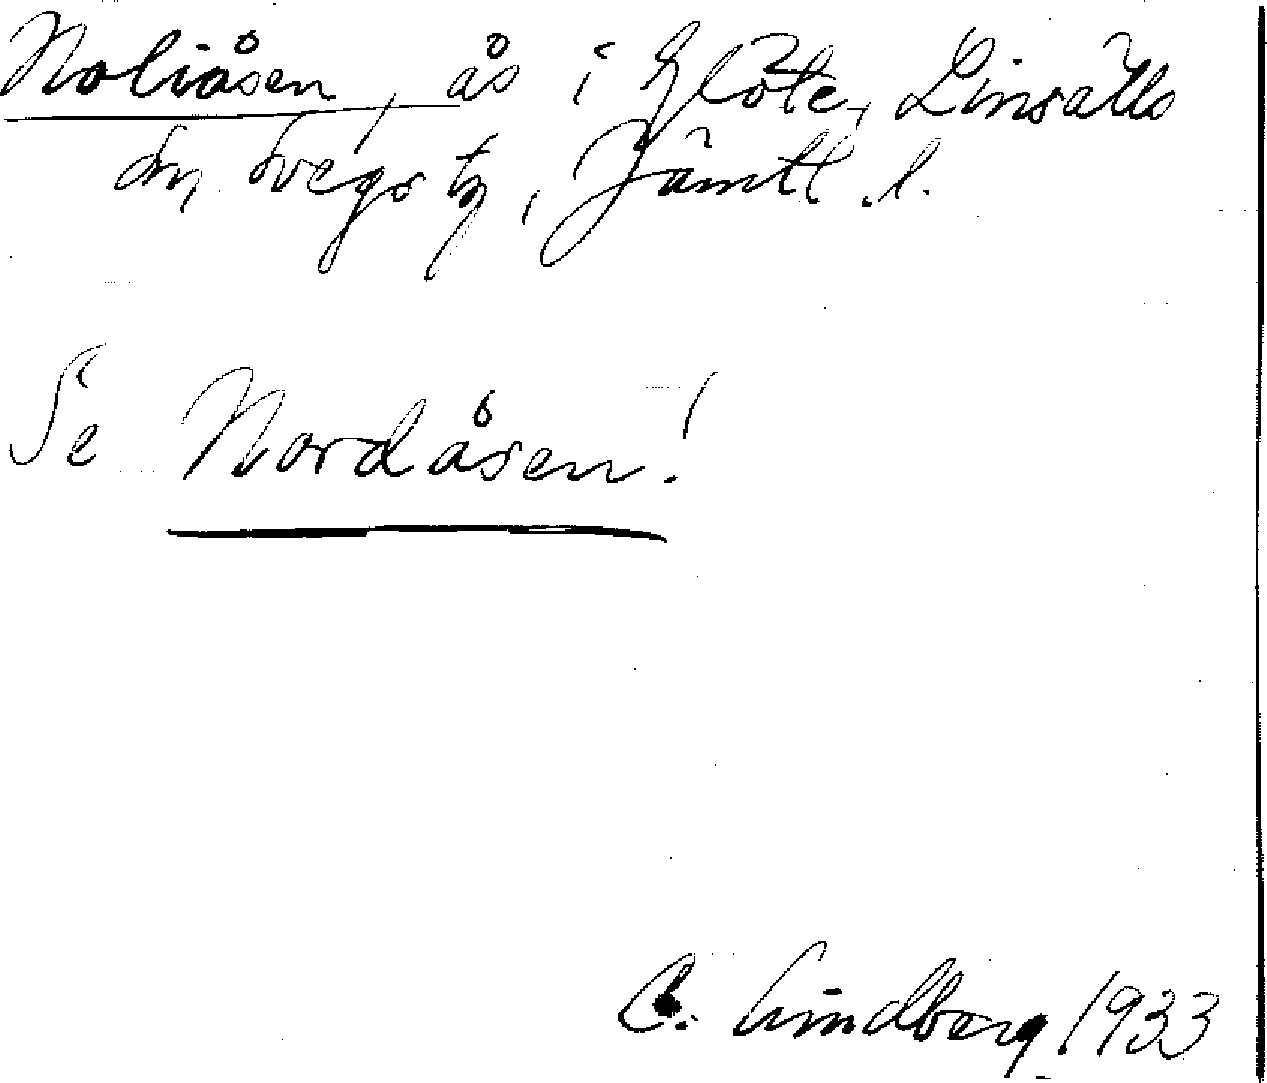 Noliåsen, ås i Glöte, Linsälls
sn, Svegs tg, Jämtl. l.
Se Nordåsen!
C. Lindberg 1933